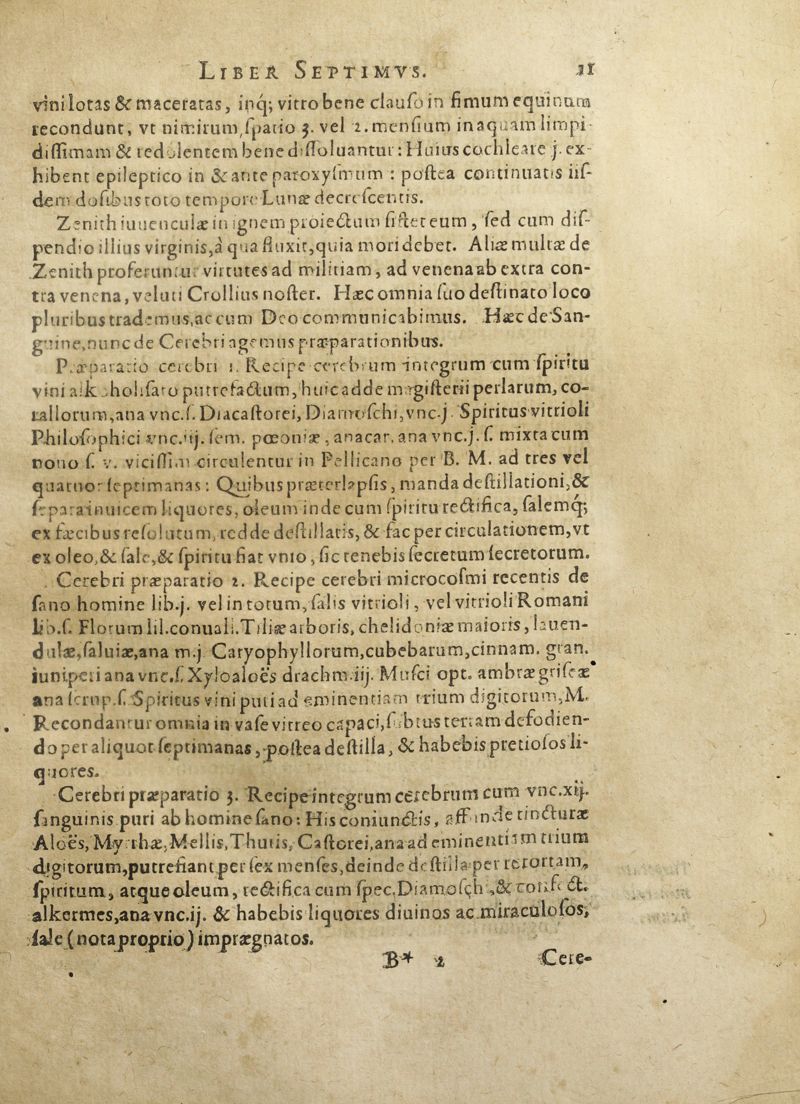 LIBER SEPTIMVS. 11
vini lotas & maceratas, inq; vitro bene clauso in fimum equinum
recondunt, vt nimirum, spatio 3. vel 2. mensium in aquam limpi-
dissimam & redolentem bene dissoluantur: Huius cochleare j. ex-
hibent epileptico in & ante paroxysmum : postea continuatis iis-
dem dosibus toto tempore Lunæ decrescentis.
Zenith iuuenculæ in ignem proiectum sistet eum, sed cum dis-
pendio illius virginis, à qua fluxit, quia mori debet. Aliæ multæ de
Zenith proferuntur virtutes ad militiam, ad venena ab extra con-
tra venena, veluti Crollius noster. Hæc omnia suo destinato loco
pluribus trademus, ac cum Deo communicabimus. Hæc de San-
guine, nunc de Cerebri agemus præparationibus.
Præparatio cerebri 1. Recipe cerebrum integrum cum spiritu
vini alkoholisato putrefactum, huic adde magisterii perlarum, co-
rallorum, ana vnc.ſ. Diacastorei, Diamoschi, vnc.j. Spiritus vitrioli
Philosophici vnc.iij. sem. pœoniæ, anacar. ana vnc.j.ſ. mixta cum
nouo ſ. v. vicissim circulentur in Pellicano per B. M. ad tres vel
quatuor septimanas: Quibus præterlapsis, manda destillationi, &
separa inuicem liquores, oleum inde cum spiritu rectifica, salemq;
ex fæcibus resolutum, redde destillatis, & fac per circulationem, vt
ex oleo, & sale, & spiritu fiat vnio, sic tenebis secretum secretorum.
Cerebri præparatio 2. Recipe cerebri microcosmi recentis de
sano homine lib.j. vel in totum, salis vitrioli, vel vitrioli Romani
lib.ſ. Florum lil.conuall. Tiliæ arboris, chelidoniæ maioris, lauen-
dulæ, saluiæ, ana m.j Caryophyllorum, cubebarum, cinnam. gran.
iuniperi ana vnc.ſ. Xyloaloës drachm.iij. Musci opt. ambræ griseæ
ana scrup.ſ. Spiritus vini puri ad eminentiam trium digitorum, M.
Recondantur omnia in vase vitreo capaci, subtus terram defodien-
do per aliquot septimanas, postea destilla, & habebis pretiosos li-
quores.
Cerebri præparatio 3. Recipe integrum cerebrum cum vnc.xij.
sanguinis puri ab homine sano: His coniunctis, affunde tincturæ
Aloës, Myrrhæ, Mellis, Thuris, Castorei, ana ad eminentiam trium
digitorum, putrefiant per sex menses, deinde destilla per retortam,
spiritum, atque oleum, rectifica cum spec. Diamosch, & confect.
alkermes, ana vnc.ij. & habebis liquores diuinos ac miraculosos,
sale (nota proprio) imprægnatos.
B* 2 Cere-